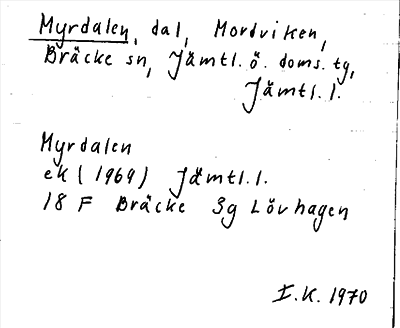 Myrdalen, dal, Mordviken,
Bräcke sn, Jämtl. ö. doms. tg,
Jämtl. l.
Myrdalen
ek (1969) Jämtl. l.
18 F Bräcke 3g Lövhagen
I.K. 1970